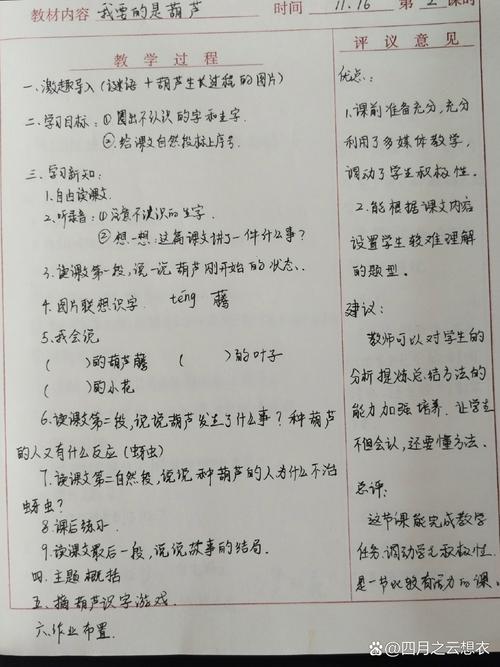 教材内容 我要的是葫芦 时间 11.16 第 2 课时
教学过程
一、激趣导入（谜语＋葫芦生长过程的图片）
二、学习目标：①圈出不认识的字和生字.
②.给课文自然段标上序号.
三、学习新知：
1.自由读课文.
2.听录音：①注意不认识的生字.
②想一想：这篇课文讲了一件什么事？
3.读课文第一段，说一说葫芦刚开始的状态.
4.图片联想识字. téng 藤
5.我会说
（ ）的葫芦藤 （ ）的叶子
（ ）的小花
6.读课文第二段，说说葫芦发生了什么事？种葫芦
的人又有什么反应（蚜虫）
7.读课文第二自然段，说说种葫芦的人为什么不治
蚜虫？
8.课后练习.
9.读课文最后一段，说说故事的结局.
四.主题概括
五.摘葫芦识字游戏.
六.作业布置.
评议意见
优点：
1.课前准备充分，充分
利用了多媒体教学，
调动了学生积极性.
2.能根据课文内容
设置学生较难理解
的题型.
建议：
教师可以对学生的
分析提炼总结方法的
能力加强培养.让学生
不但会认，还要懂方法.
总评：
这节课能完成教学
任务.调动学生积极性.
是一节比较有活力的课.
百家号/四月之云想衣